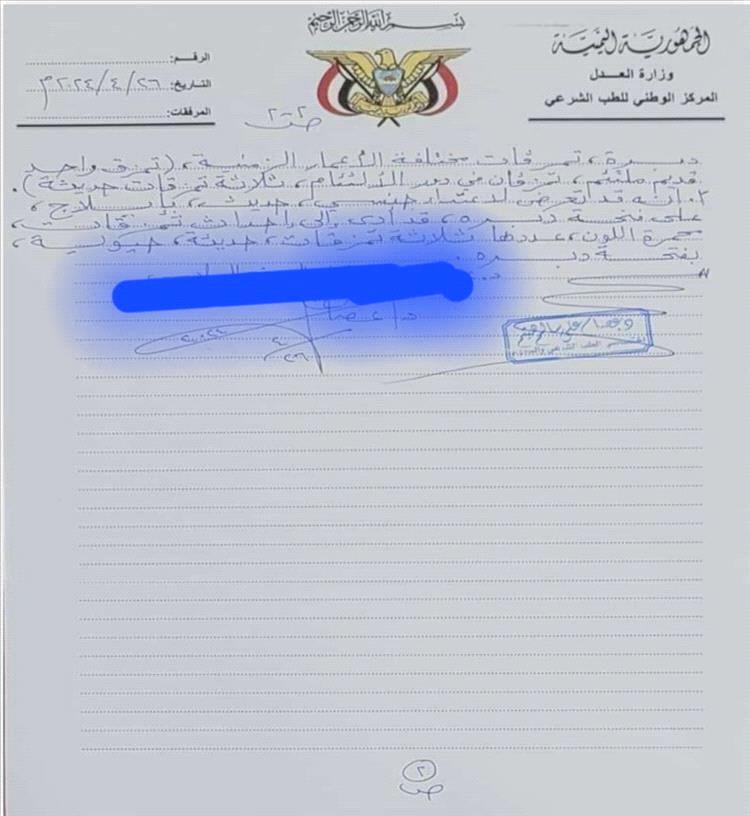 بسم الله الرحمن الرحيم
الجمهورية اليمنية
وزارة العدل
المركز الوطني للطب الشرعي
الرقم:
التاريخ: ٢٦/٤/٢٠٢٤م
المرفقات:
دبرة، تمزقات مختلفة الأعمار الزمنية، (تمزق واحد
قديم ملتئم، تمزقان في دور الالتئام، ثلاثة تمزقات حديثة).
٢. إنه قد تعرض لاعتداء جنسي، حديث، بإيلاج،
على فتحة دبره، قد أدى إلى إحداث تمزقات،
محمرة اللون، عددها ثلاثة تمزقات، حديثة، حيوية،
بفتحة دبره.
٢
ص